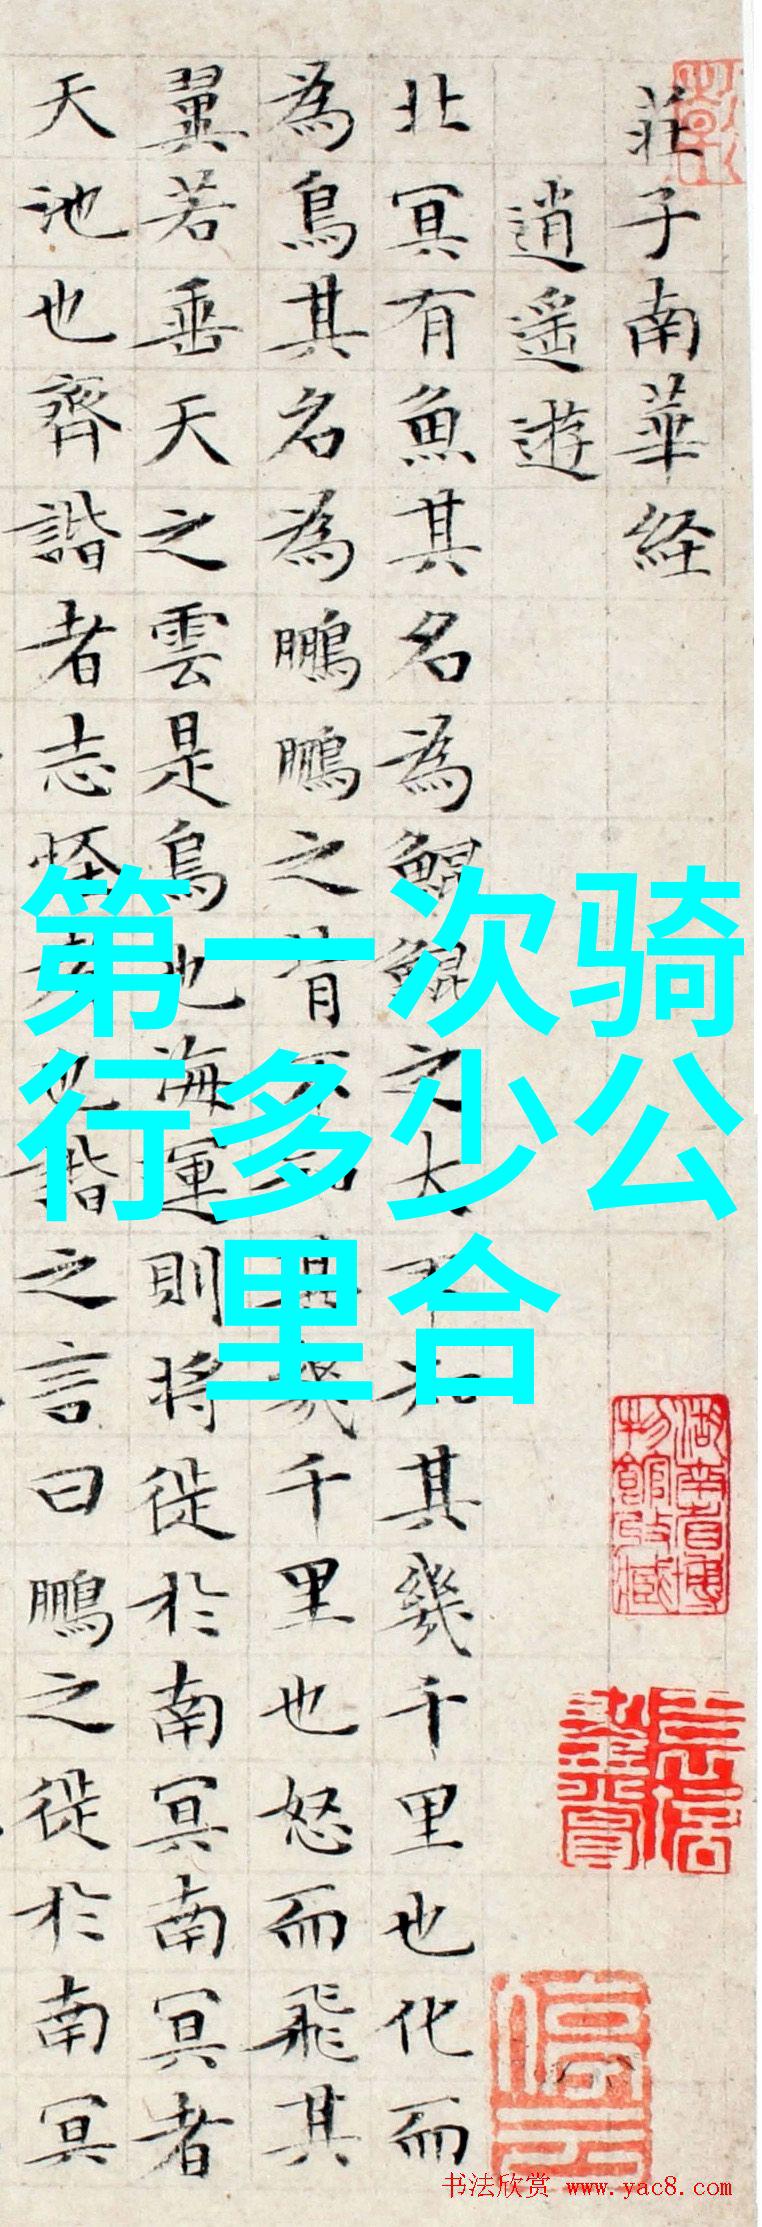 莊子南華経
逍遥遊
北冥有魚其名為鯤鯤之大不知其幾千里也化而
為鳥其名為鵬鵬之背不知其幾千里也怒而飛其
翼若垂天之雲是鳥也海運則将徙於南冥南冥者
天池也齊諧者志怪者也諧之言曰鵬之徙於南冥
第一次骑
行多少公
里合
湖南省博物館收藏
书法欣赏 www.yac8.com